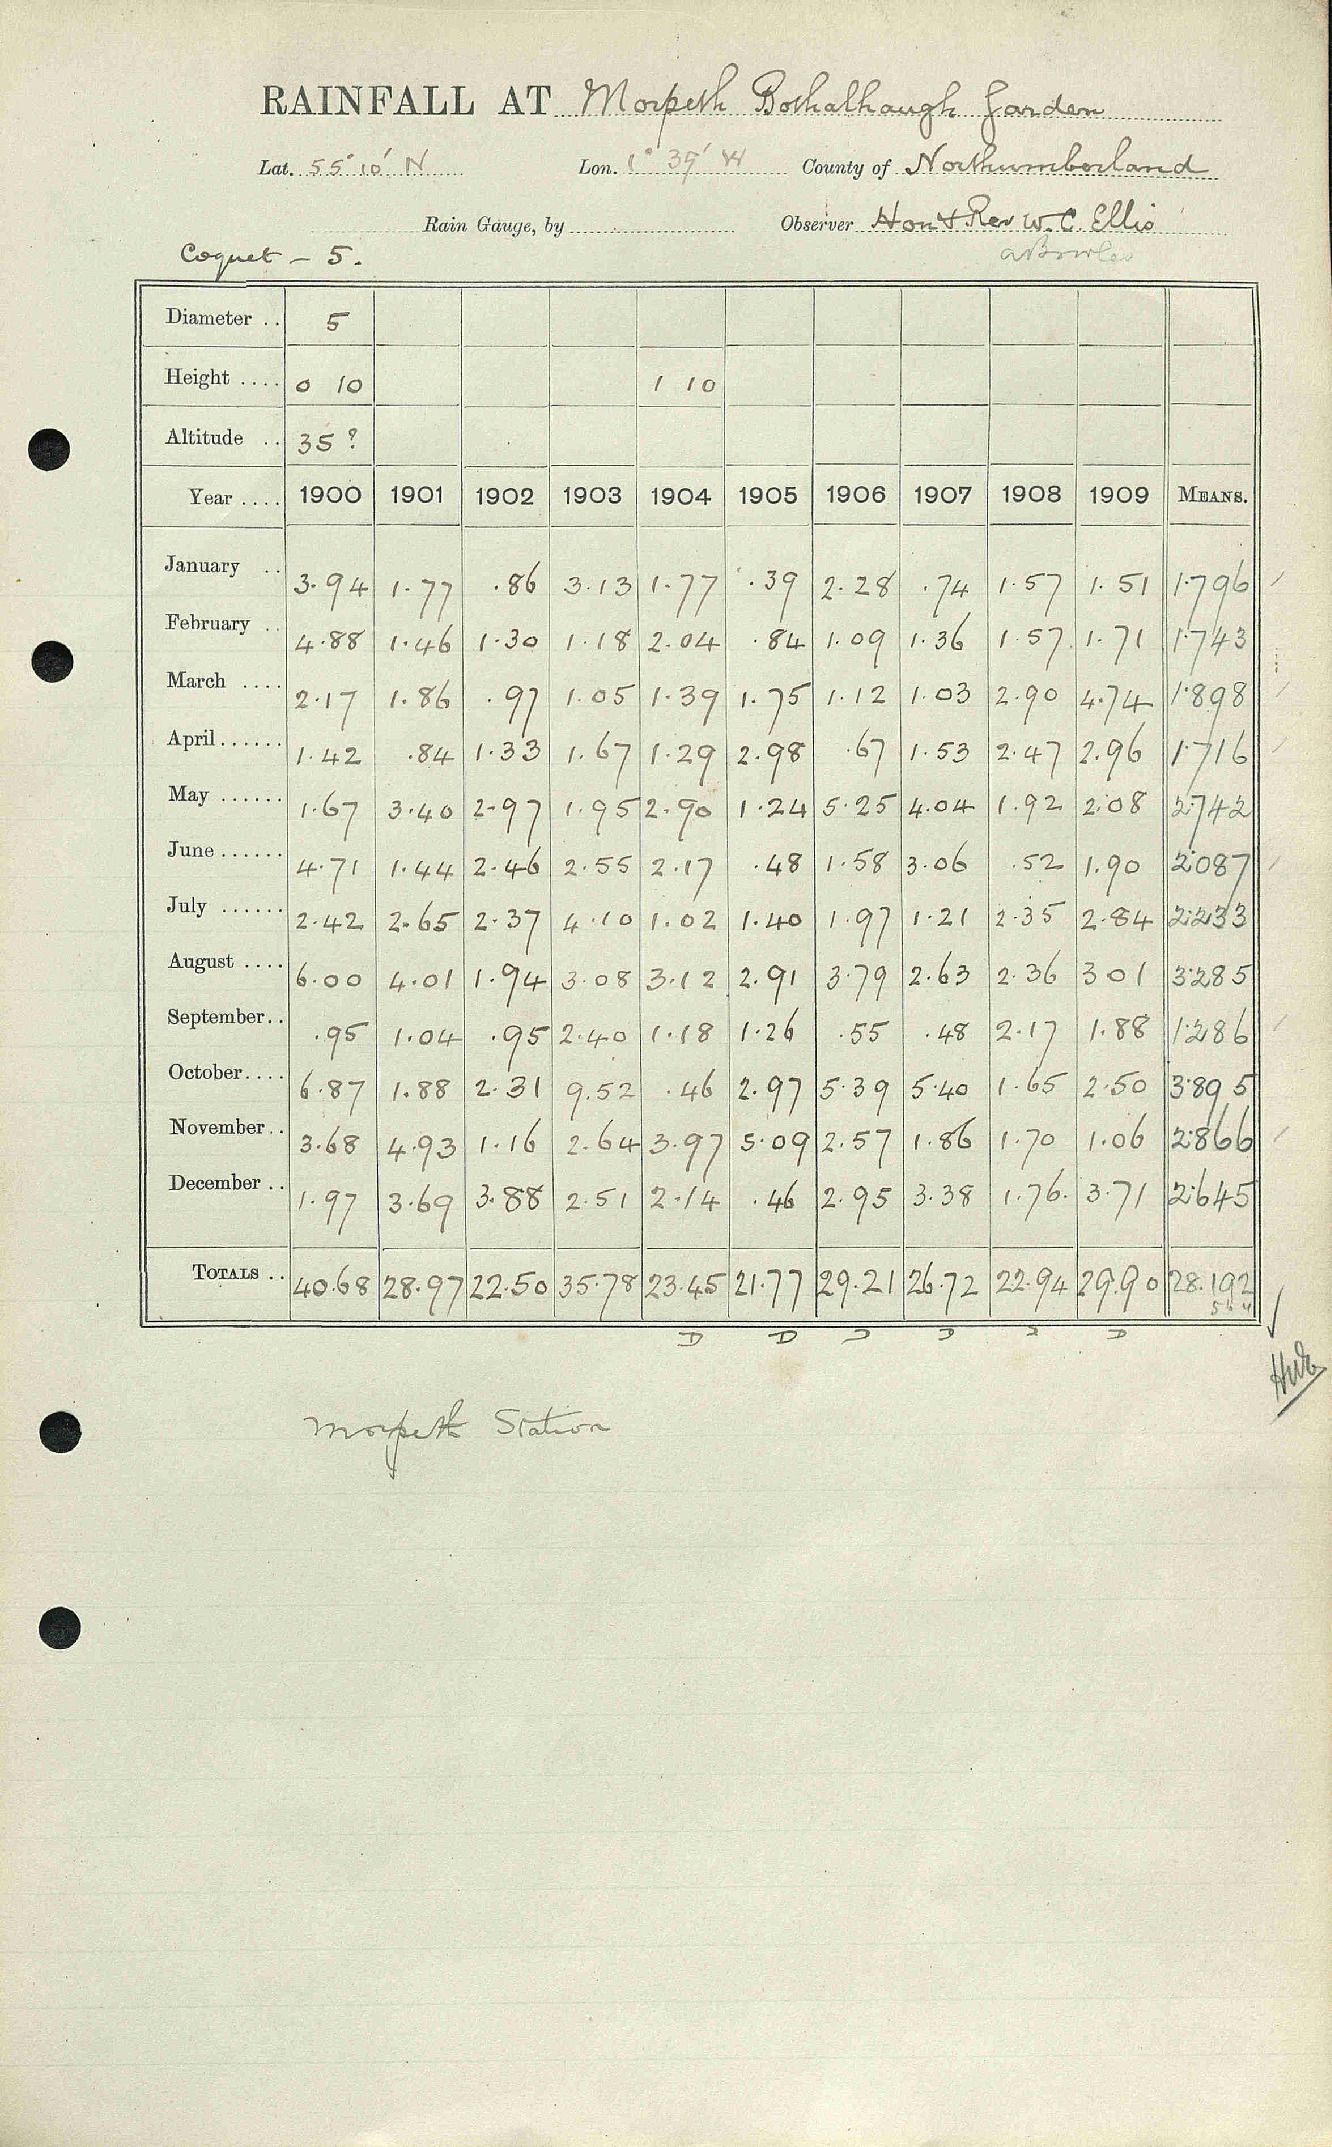 RAINFALL AT Morpeth Bothalhaugh Garden
Lat. 55° 10' N Lon. 1° 39' W County of Northumberland
Rain Gauge, by Observer Hon & Rev W. C. Ellis
Coquet - 5. A Bowles
Diameter .. 5
Height .... 0 10 1 10
Altitude .. 35 ?
Year .... 1900 1901 1902 1903 1904 1905 1906 1907 1908 1909 MEANS.
January .. 3.94 1.77 .86 3.13 1.77 .39 2.28 .74 1.57 1.51 1.796
February .. 4.88 1.46 1.30 1.18 2.04 .84 1.09 1.36 1.57 1.71 1.743
March .... 2.17 1.86 .97 1.05 1.39 1.75 1.12 1.03 2.90 4.74 1.898
April ...... 1.42 .84 1.33 1.67 1.29 2.98 .67 1.53 2.47 2.96 1.716
May ...... 1.67 3.40 2.97 1.95 2.90 1.24 5.25 4.04 1.92 2.08 2.742
June ...... 4.71 1.44 2.46 2.55 2.17 .48 1.58 3.06 .52 1.90 2.087
July ...... 2.42 2.65 2.37 4.10 1.02 1.40 1.97 1.21 2.35 2.84 2.233
August .... 6.00 4.01 1.94 3.08 3.12 2.91 3.79 2.63 2.36 3 01 3.285
September .. .95 1.04 .95 2.40 1.18 1.26 .55 .48 2.17 1.88 1.286
October .... 6.87 1.88 2.31 9.52 .46 2.97 5.39 5.40 1.65 2.50 3.895
November .. 3.68 4.93 1.16 2.64 3.97 5.09 2.57 1.86 1.70 1.06 2.866
December .. 1.97 3.69 3.88 2.51 2.14 .46 2.95 3.38 1.76. 3.71 2.645
TOTALS .. 40.68 28.97 22.50 35.78 23.45 21.77 29.21 26.72 22.94 29.90 28.192
D D D D D D
Morpeth Station